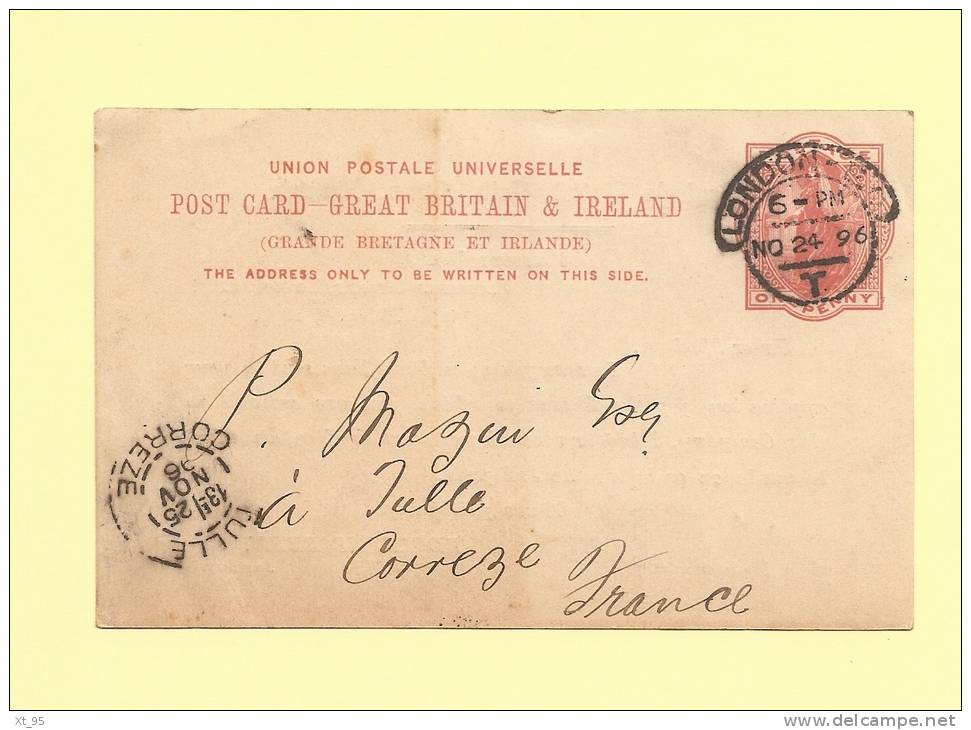 UNION POSTALE UNIVERSELLE
POST CARD—GREAT BRITAIN & IRELAND
(GRANDE BRETAGNE ET IRLANDE)
THE ADDRESS ONLY TO BE WRITTEN ON THIS SIDE.
LONDON
6 - PM
NO 24 96
T.
ONE PENNY
P. Mazeu Esq
à Tulle
Correze
France
TULLE
CORREZE
25
NOV
96
Xt_95
www.delcampe.net